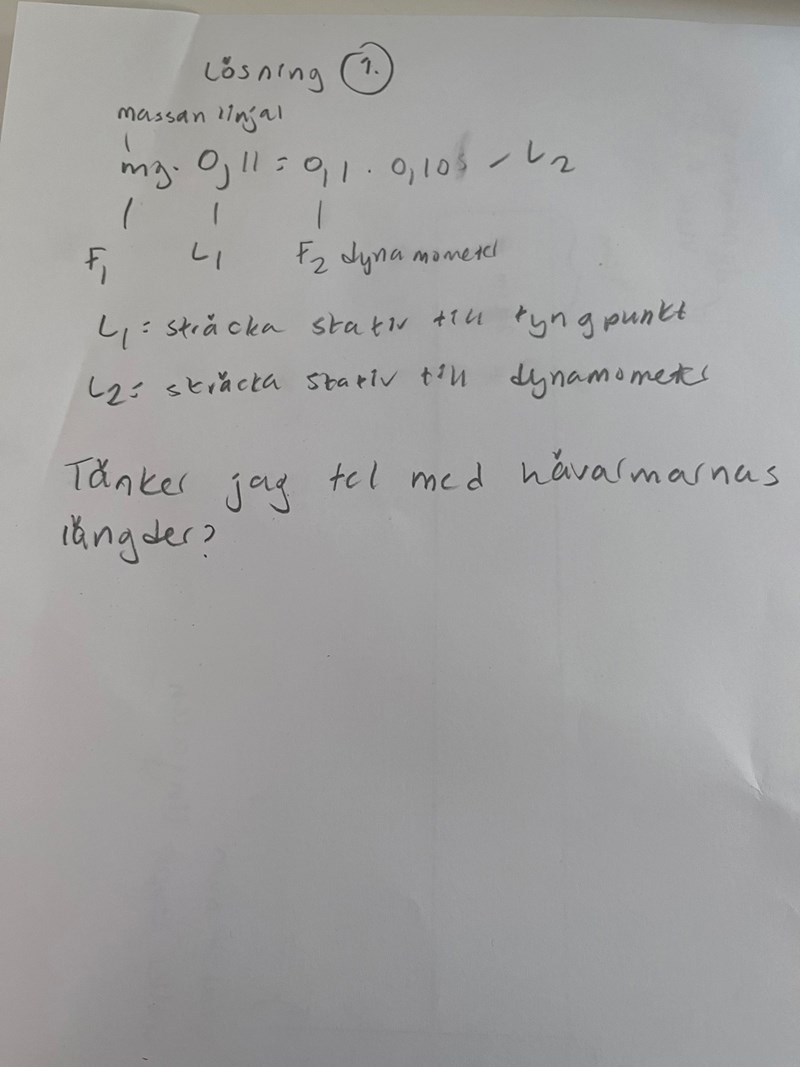 Lösning 1.
massan linjal
mg. 0,11 = 0,1 . 0,105 - L2
F1 L1 F2 dynamometer
L1 = sträcka stativ till tyngpunkt
L2 = sträcka stativ till dynamometer
Tänker jag fel med hävarmarnas
längder?